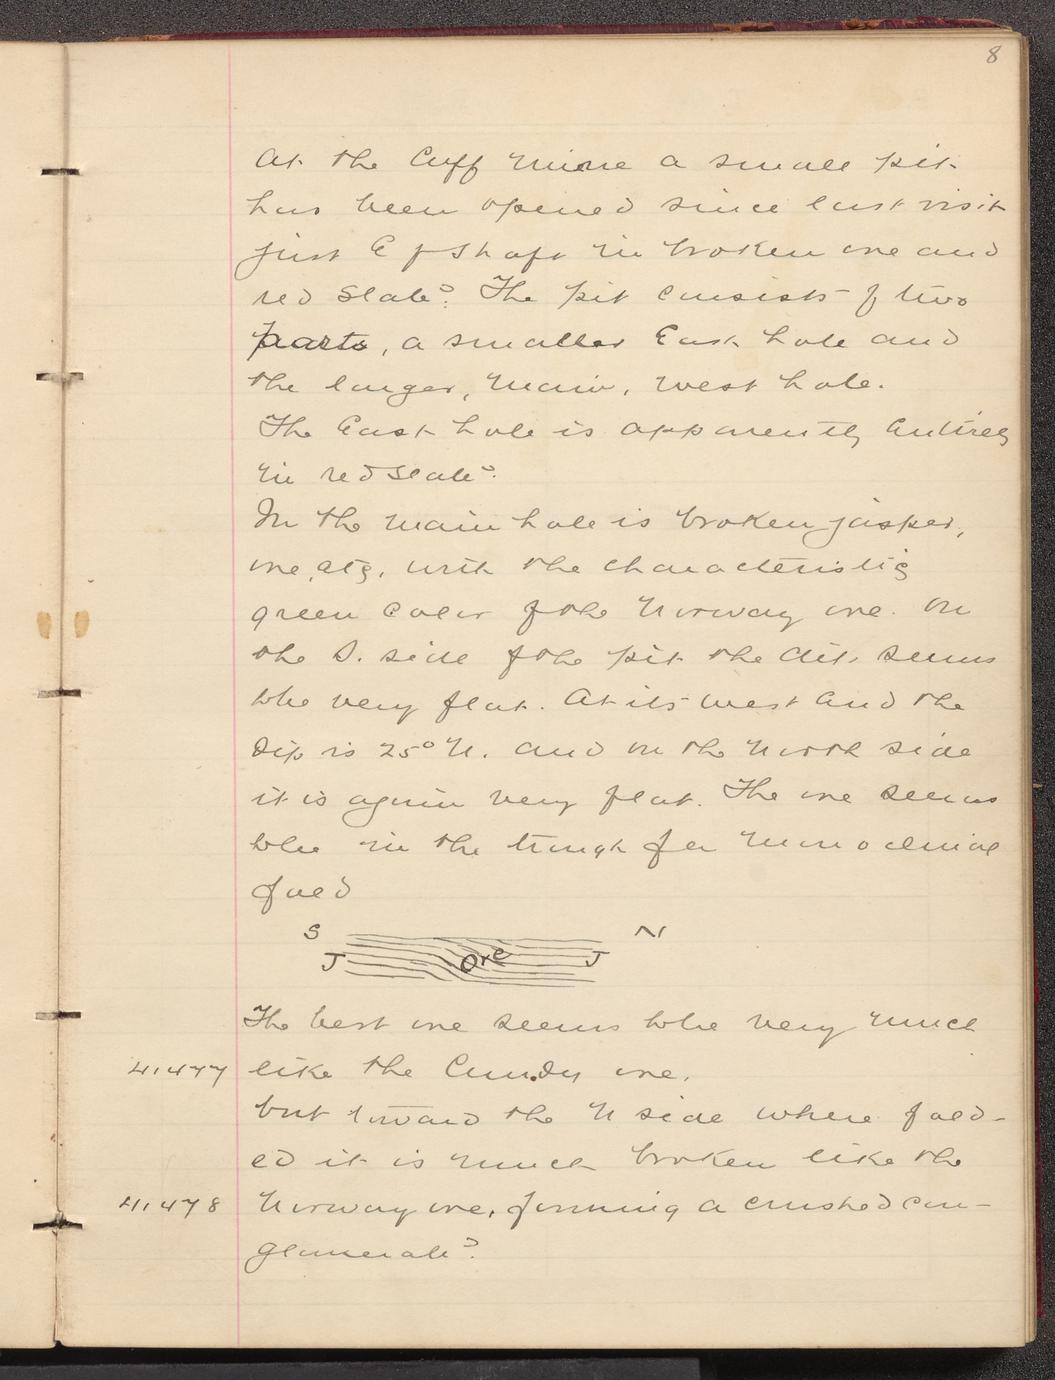 8
At the Cuff Mine a small pit
has been opened since last visit
just E of Shaft in broken ore and
red slate. The pit consists of two
parts, a smaller East hole and
the larger, main, west hole.
The East hole is apparently entirely
in red slate.
In the main hole is broken jasper,
ore, etc, with the characteristic
green color of the Norway ore. On
the S. side of the pit the dip seems
to be very flat. At its west end the
dip is 25° N. and on the North side
it is again very flat. The ore seems
to be in the trough of a monoclinal
fold
S N
J Ore J
The best ore seems to be very much
41477 like the Cundy ore.
but toward the N side where fold-
ed it is much broken like the
41478 Norway ore, forming a crushed con-
glomerate.